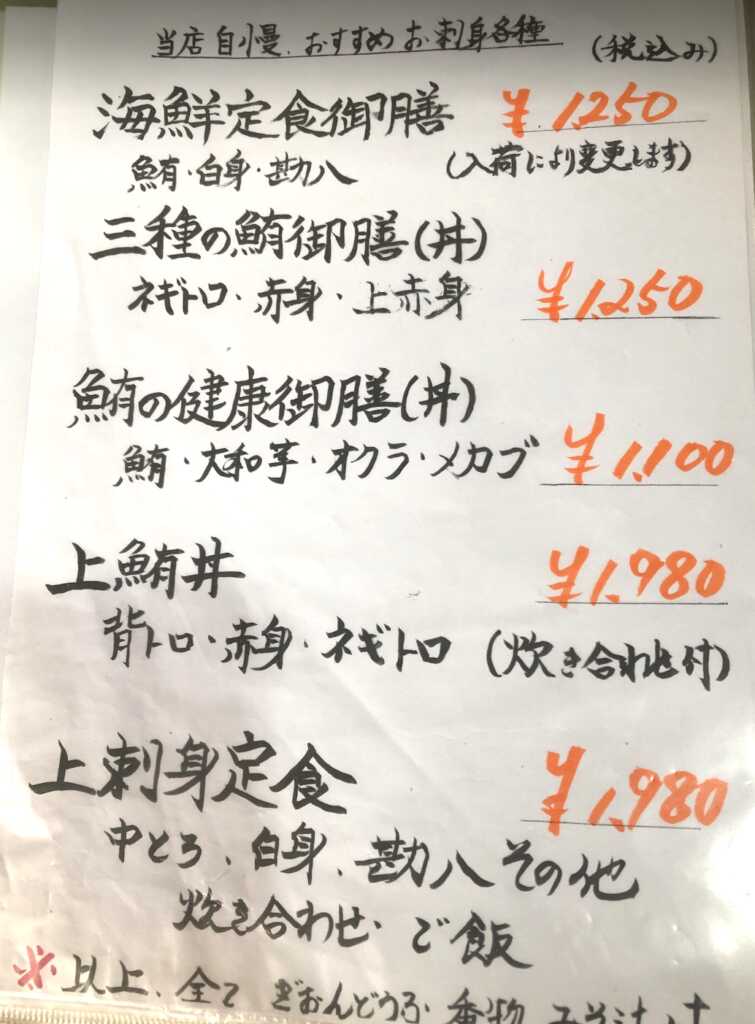 当店自慢、おすすめお刺身各種 (税込み)
海鮮定食御膳 ¥1,250
鮪・白身・勘八 (入荷により変更します)
三種の鮪御膳(丼)
ネギトロ・赤身・上赤身 ¥1,250
鮪の健康御膳(丼)
鮪・大和芋・オクラ・メカブ ¥1,100
上鮪丼 ¥1,980
背トロ・赤身・ネギトロ (炊き合わせ付)
上刺身定食 ¥1,980
中とろ、白身、勘八その他
炊き合わせ・ご飯
※以上、全て ぎおんどうふ 香物 みそ汁